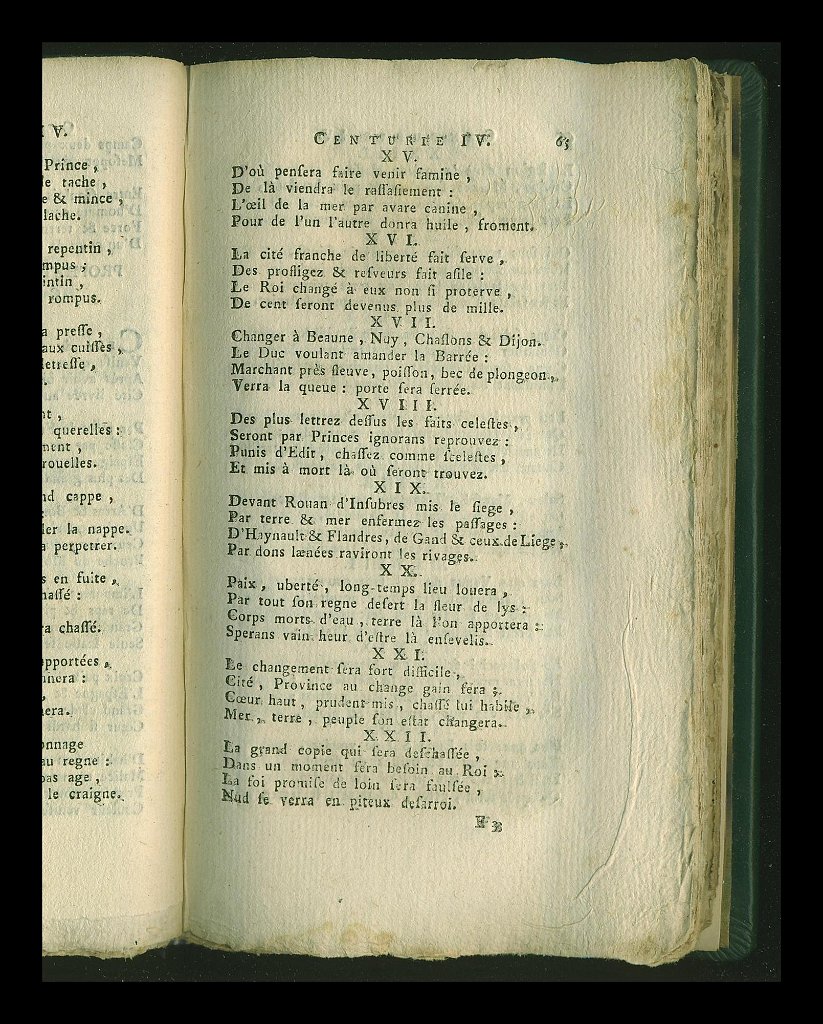 I V.
Prince,
e tache,
e & mince,
lache.
repentin,
mpus;
intin,
rompus.
a preſſe,
aux cuiſſes,
letreſſe,
nt,
querelles:
ment,
rouelles.
nd cappe,
ler la nappe.
a perpetrer.
s en fuite,
haſſé:
ra chaſſé.
pportées,
nnera:
nera.
onnage
au regne:
pas age,
le craigne.
CENTURIE IV. 65
X V.
D'où penſera faire venir famine,
De là viendra le raſſaſiement:
L'œil de la mer par avare canine,
Pour de l'un l'autre donra huile, froment.
X V I.
La cité franche de liberté fait ſerve,
Des profligez & reſveurs fait aſile:
Le Roi changé à eux non ſi proterve,
De cent ſeront devenus plus de mille.
X V I I.
Changer à Beaune, Nuy, Chaſlons & Dijon.
Le Duc voulant amander la Barrée:
Marchant près fleuve, poiſſon, bec de plongeon,
Verra la queue: porte ſera ſerrée.
X V I I I.
Des plus lettrez deſſus les faits celeſtes,
Seront par Princes ignorans reprouvez:
Punis d'Edit, chaſſez comme ſceleſtes,
Et mis à mort là où ſeront trouvez.
X I X.
Devant Rouan d'Inſubres mis le ſiege,
Par terre & mer enfermez les paſſages:
D'Haynault & Flandres, de Gand & ceux de Liege,
Par dons lænées raviront les rivages.
X X.
Paix, uberté, long-temps lieu louera,
Par tout ſon regne deſert la fleur de lys:
Corps morts d'eau, terre là l'on apportera:
Sperans vain heur d'eſtre là enſevelis.
X X I.
Le changement ſera fort difficile,
Cité, Province au change gain fera;
Cœur haut, prudent mis, chaſſé lui habile,
Mer, terre, peuple ſon eſtat changera.
X X I I.
La grand copie qui ſera deſchaſſée,
Dans un moment ſera beſoin au Roi:
La foi promiſe de loin ſera faulſée,
Nud ſe verra en piteux deſarroi.
F 3